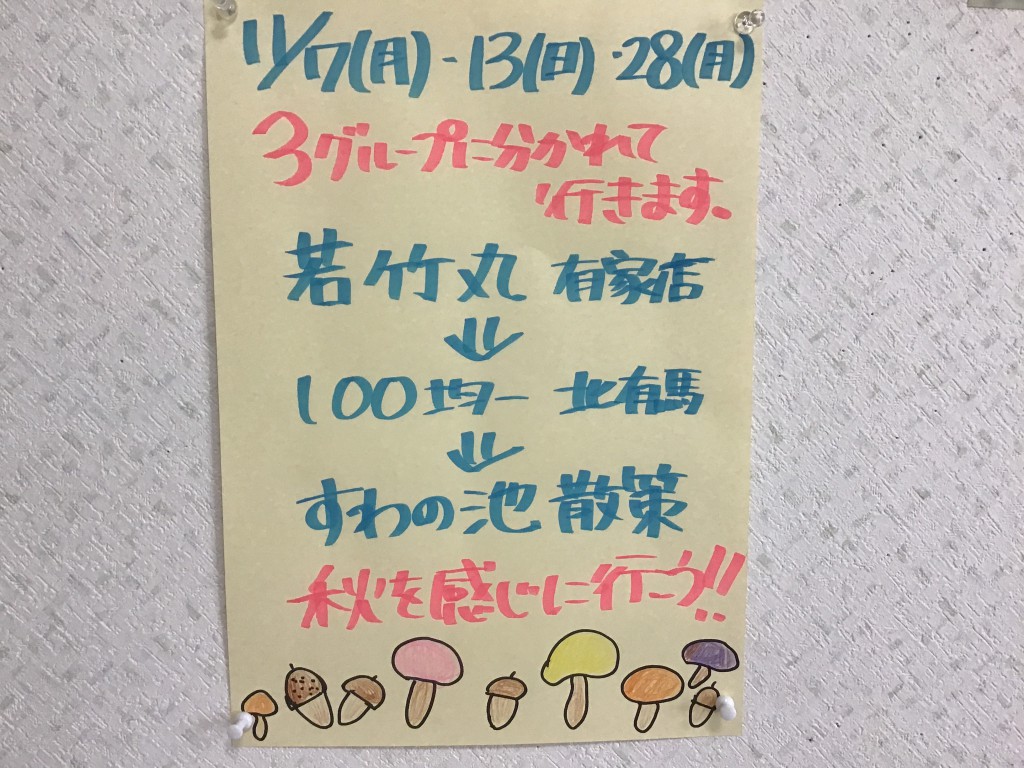 11/7(月)・13(日)・28(月)
3グループに分かれて
行きます。
若竹丸 有家店
⇓
100均一 北有馬
⇓
すわの池 散策
秋を感じに行こう!!